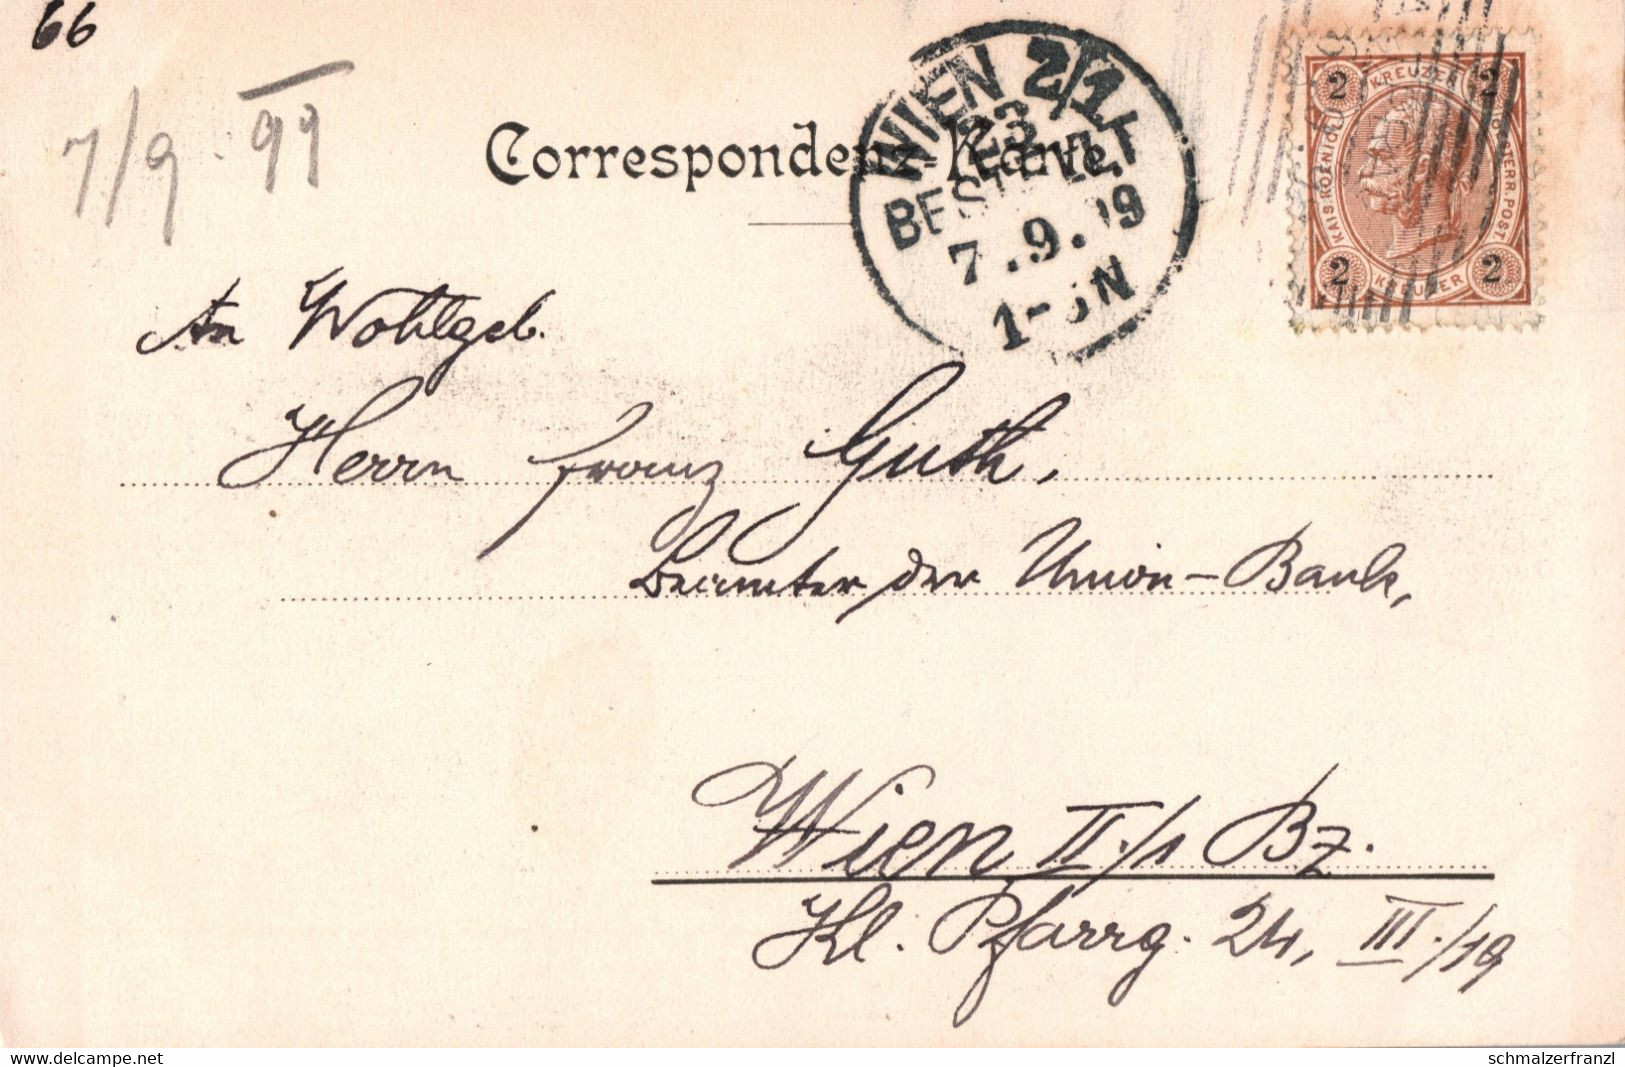 66
7/9. 99
Correspondenz-Karte.
WIEN 2/1
BESTELLT
7.9.99
2 KREUZER 2
KAIS. KOENIGL. OESTERR. POST.
2 KREUZER 2
An Wohlgeb.
Herrn Franz Guth,
Beamter der Union-Bank,
Wien II./1 Bz.
Kl. Pfarrg. 24, III./19
delcampe.net
schmalzerfranzl